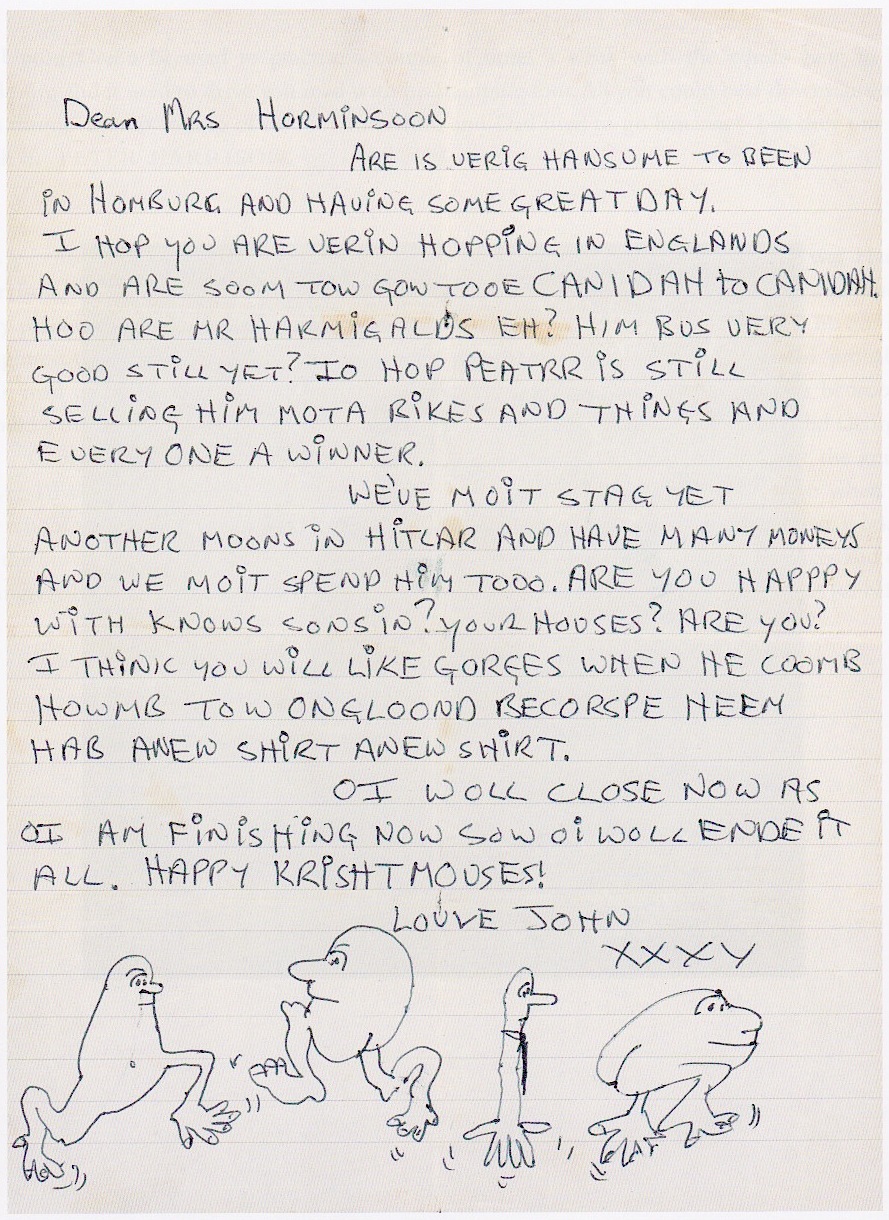 Dear Mrs HORMINSOON
ARE IS VERIG HANSUME TO BEEN
IN HOMBURG AND HAVING SOME GREAT DAY.
I HOP YOU ARE VERIN HOPPING IN ENGLANDS
AND ARE SOOM TOW GOW TOOE CANIDAH to CANIDAH.
HOO ARE MR HARMIGALDS EH? HIM BUS VERY
GOOD STILL YET? IO HOP PEATRR IS STILL
SELLING HIM MOTA RIKES AND THINGS AND
EVERY ONE A WINNER.
WE'VE MOIT STAG YET
ANOTHER MOONS IN HITLAR AND HAVE MANY MONEYS
AND WE MOIT SPEND HIM TOOO. ARE YOU HAPPPY
WITH KNOWS SONS IN? YOUR HOUSES? ARE YOU?
I THINK YOU WILL LIKE GORGES WHEN HE COOMB
HOWMB TOW ONGLOOND BECORSPE HEEM
HAB ANEW SHIRT ANEW SHIRT.
OI WOLL CLOSE NOW AS
OI AM FINISHING NOW SOW OI WOLL ENDE IT
ALL. HAPPY KRISHTMOUSES!
LOUVE JOHN
XXXY